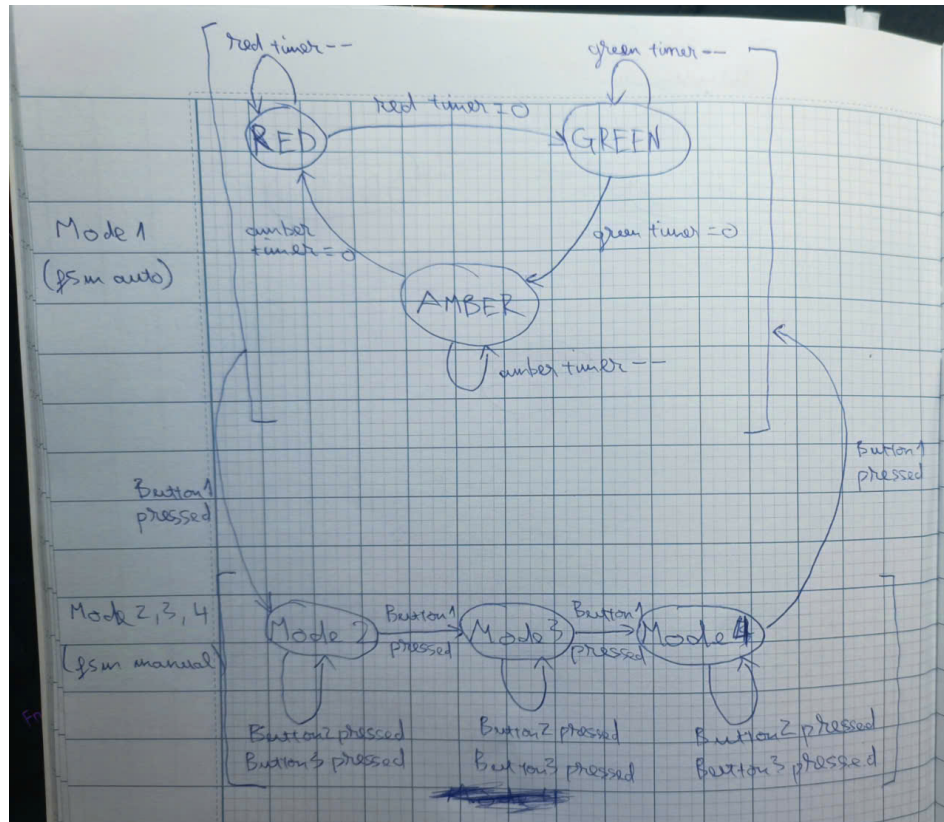 red timer--
green timer--
red timer=0
RED
GREEN
Mode 1
(fsm auto)
amber
timer=0
green timer=0
AMBER
amber timer--
Button1
pressed
Button1
pressed
Mode 2, 3, 4
(fsm manual)
Mode 2
Button1
pressed
Mode 3
Button1
pressed
Mode 4
Button2 pressed
Button3 pressed
Button2 pressed
Button3 pressed
Button2 pressed
Button3 pressed